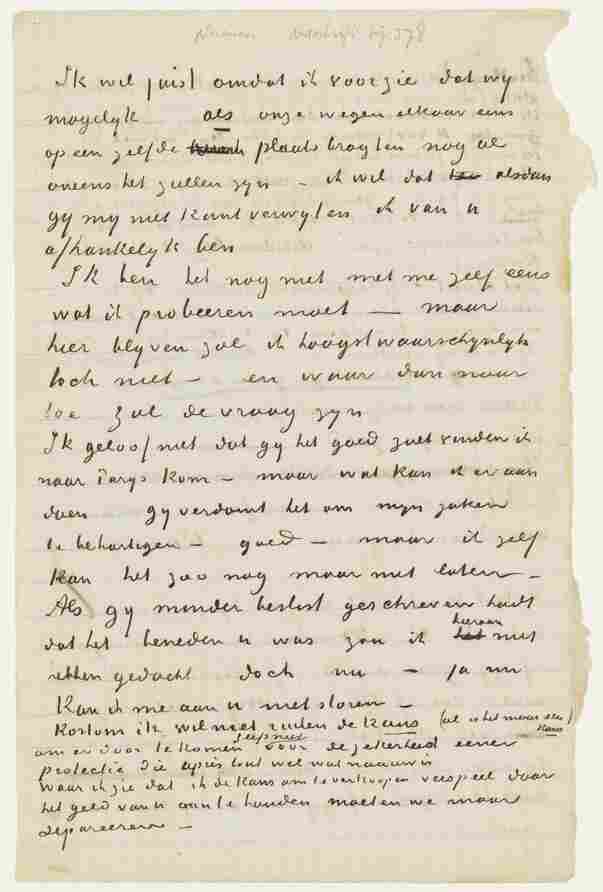 Ik wil juist omdat ik voorzie dat wy
mogelyk als onze wegen elkaar eens
op een zelfde plaats bragten nog al
oneens het zullen zyn – ik wil dat alsdan
gy my niet kunt verwyten ik van u
afhankelyk ben
Ik ben het nog niet met me zelf eens
wat ik probeeren moet — maar
hier blyven zal ik hoogstwaarschynlyk
toch niet – en waar dan naar
toe zal de vraag zyn
Ik geloof niet dat gy het goed zult vinden ik
naar Parys kom – maar wat kan ik er aan
doen gy verdomt het om myn zaken
te behartigen – goed – maar ik zelf
kan het zoo nog maar niet laten –
Als gy minder beslist geschreven hadt
dat het beneden u was zou ik hieraan niet
hebben gedacht doch nu – ja nu
kan ik me aan u niet storen –
Kortom ik wil niet ruilen de kans (al is het maar een kans)
om er door te komen voor de zekerheid eener
protectie die après tout wel wat naauw is
Waar ik zie dat ik de kans om te verkoopen verspeel door
het geld van u aan te houden moeten we maar
separeeren –